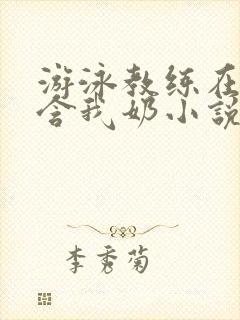 游泳教练在
含我奶小说
李秀菊